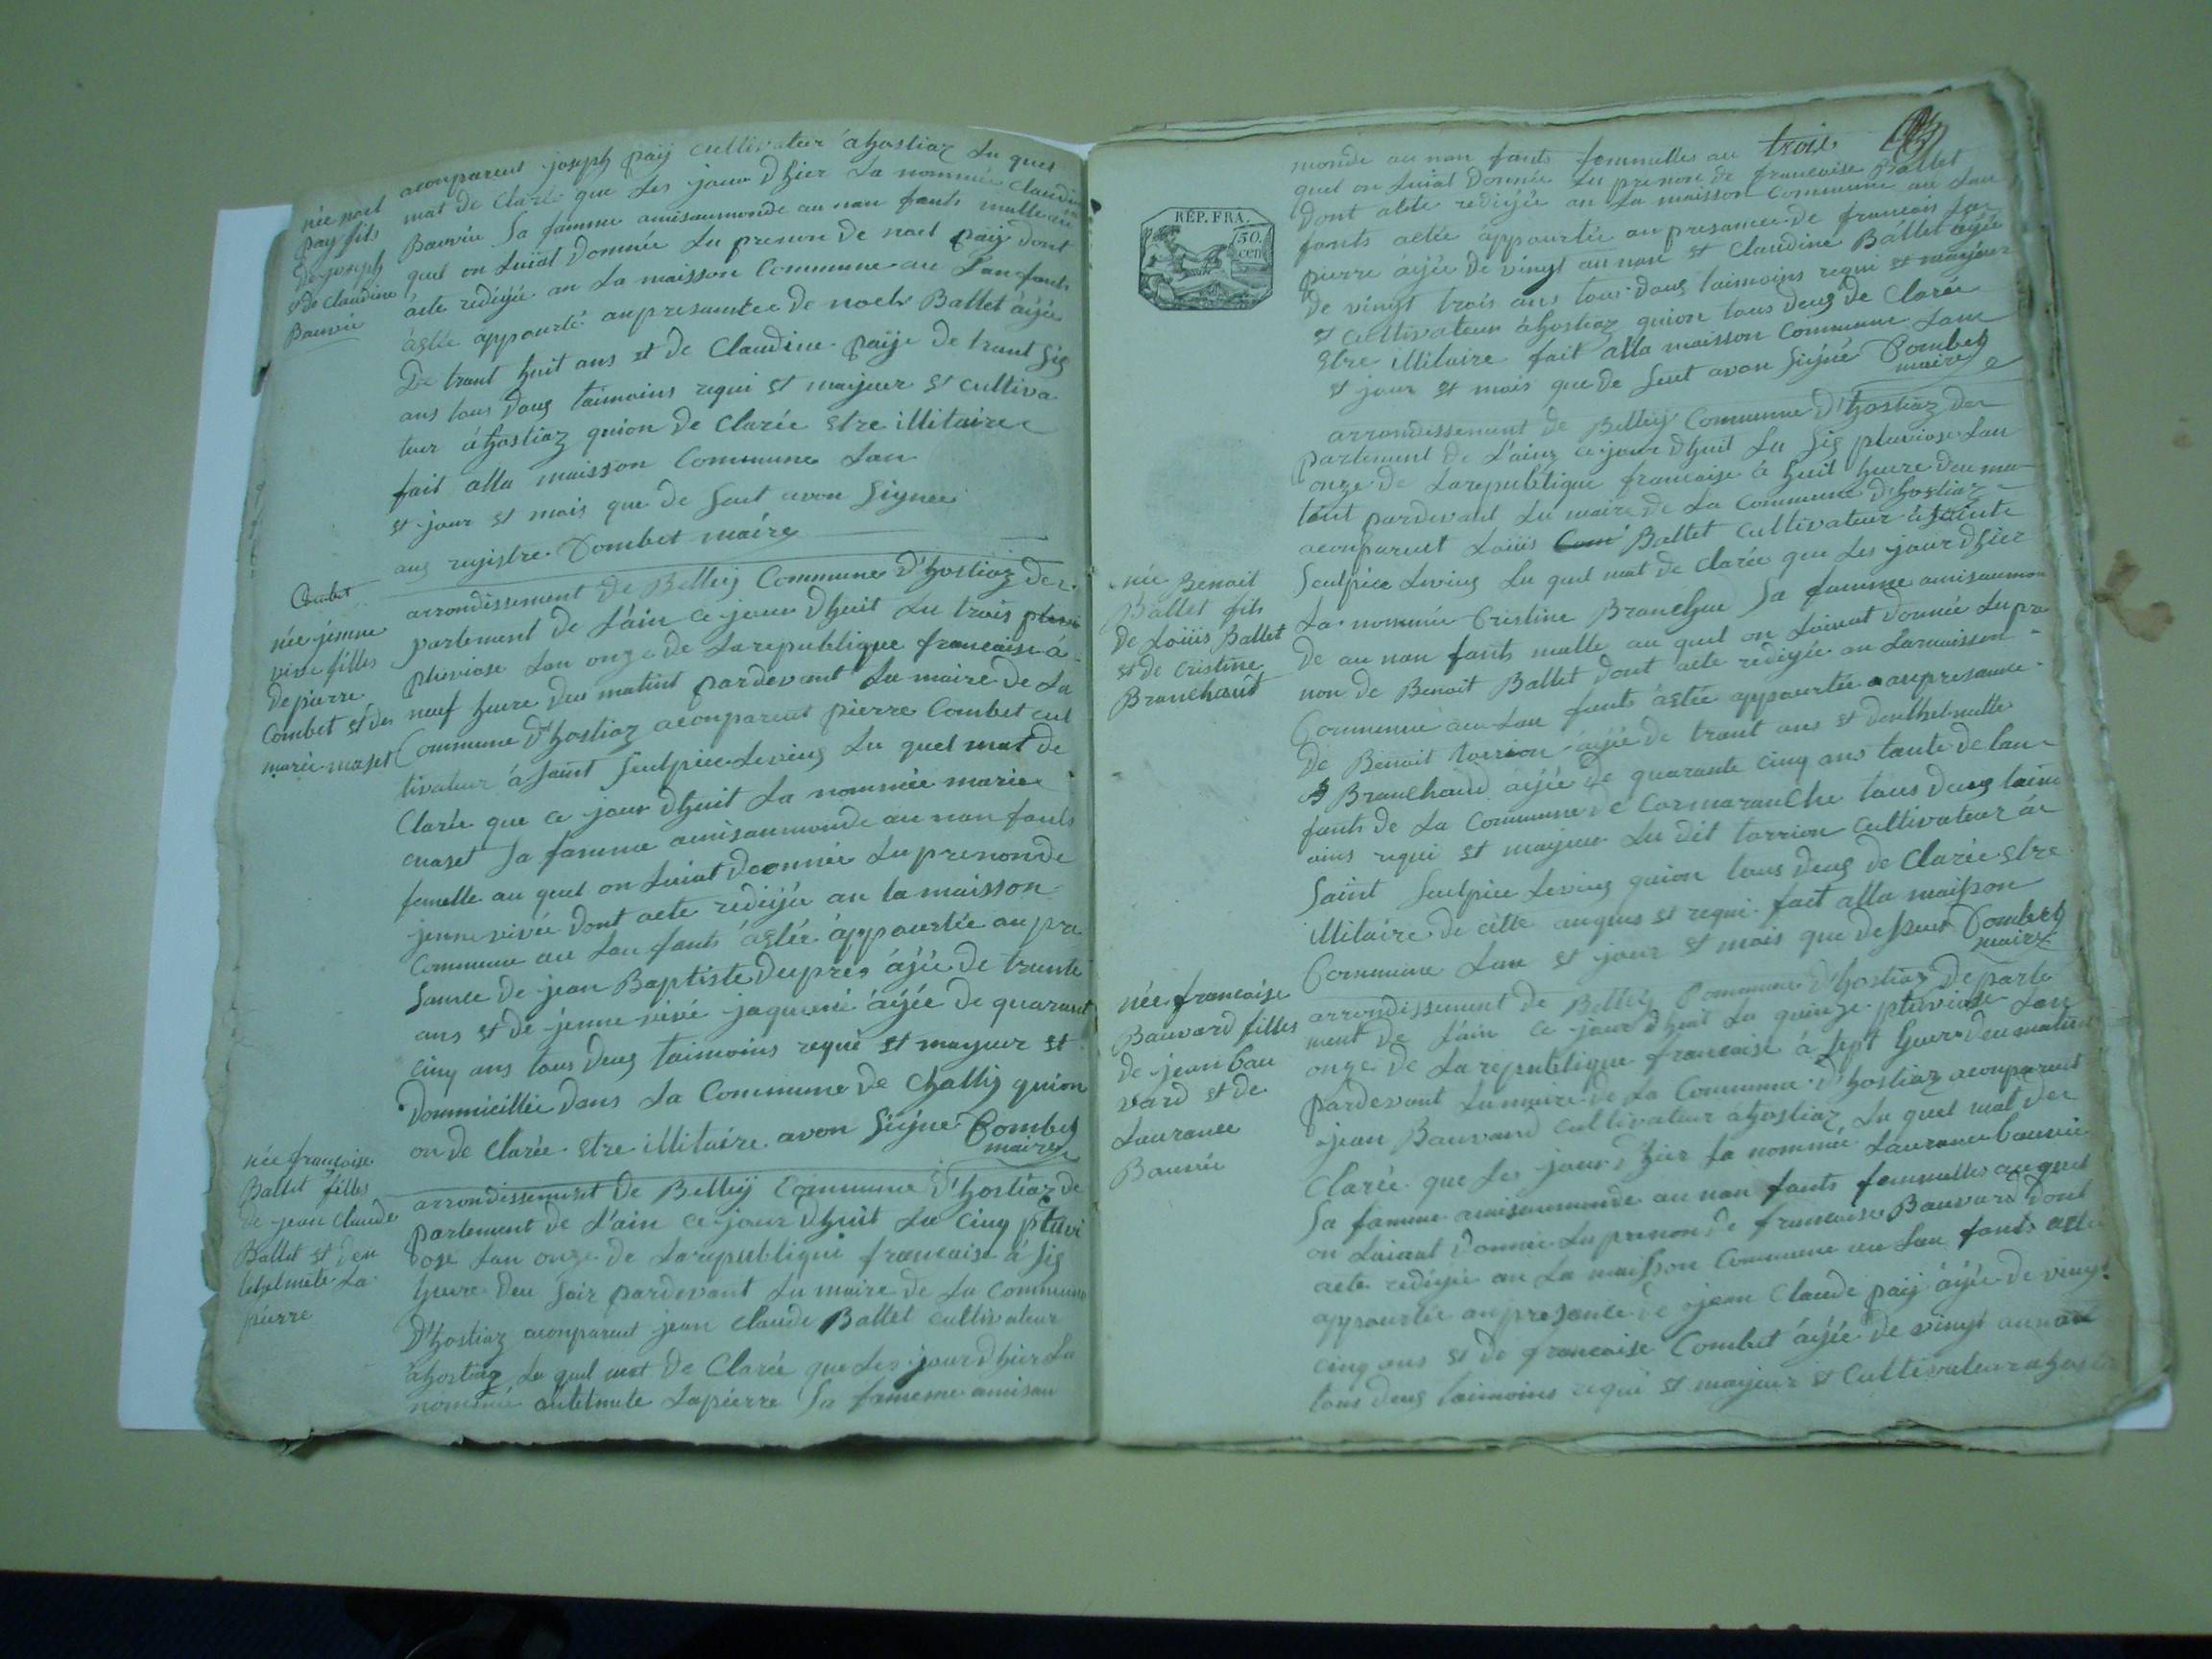 née noel
pay fils
de joseph
et de Claudine
Bauvéc
aconparent joseph païj cultivateur áhostiaz Lu quel
mat de Clarée que Les jour dhier La nommée claudine
Bauvée Sa famme amisaumonde au nan fants malle au
quel on Luiat Donnée Lu prenon de noel païj dont
acte redijée an La maisson Commune au Lan fants
ástée áppourté anpresantce de noel Ballet áijée
De trant huit ans et de Claudine païje de trant Sig
ans tous Doug taimoins requi et maijeur et cultiva
teur áhostiaz quion de Clarée estre illitaire
fait alla maisson Commune Lan
et jour et mois que de Seut avon Signée
aug rejistre Combet maire
Combet
née jenne
vive filles
de pierre
Combet et de
marie maset
arrondissement de Belleij Commune D'hostiaz de
partement de L'ain ce jour dhuit Lu trois pluvi
pluviose Lan onze de Larepublique francaise á
neuf heure deu matint pardevant Lu maire de La
Commune d'hostiaz aconparent pierre Combet cul
tivateur á Saint Seulpice Levieug Lu quel mat de
Clarée que ce jour dhuit La nommée marie
maset Sa famme amisaumonde au nan fants
famelle au quel on Luiat deonnée Lu prenon de
jenne vivée dont acte redijée an la maisson
Commune au Lan fants ástée áppourtée anpre
Sance de jean Baptiste deupres ájée de trante
ans et de jenne vivé jaquemé áijée de quarant
cinq ans tous Deug taimoins requi et mayeur et
Dommicillée dans La Commune de Challiz quion
on de Clarée estre illitaire avon Signe Combet
maire
née francoise
Ballet filles
de jean claude
Ballet et d'en
telmete La
pierre
arrondissement de Belleij Commune D'hostiaz de
partement de L'ain ce jour dhuit Lu Cinq pluvi
ose Lan onze de Larepublique francaise á Sig
heure deu Soir pardevant Lu maire de La Commune
D'hostiaz aconparent jean claude Ballet cultivateur
áhostiaz Lu quel mat de Clarée que Les jour dhier La
nommée antelmete Lapierre Sa famme amisau
trois
RÉP. FRA.
50.
cen
monde au nan fants femmelles au
quel on Luiat Donnée Lu prenon de francoise Ballet
Dont acte redijée an La maisson Commune au Lan
fants astée áppourtée an presance de francois La
pierre áijée de vingt au nan et Claudine Ballet áijée
de vingt trois ans tous doug taimoins requi et maijeur
et Cultivateur áhostiaz quion tous deug de Clarée
estre illitaire fait alla maisson Commune Lan
et jour et mois que de Seut avon Signé Combet
maire
arrondissement de Belleij Commune D'hostiaz de
partement de L'ain ce jour dhuit Lu Sig pluviose Lan
onze de Larepublique francaise á huit heure deu ma
tint pardevant Lu maire de La Commune d'hostiaz
aconparent Loüis Ballet cultivateur á Sainte
Seulpice Levieug Lu quel mat de clarée que Les jour dhier
La nommée Cristine Branchue Sa famme amisaumon
de au nan fants malle au quel on Luiaut donnée Lu pre
non de Benoit Ballet dont acte redijée an Lamaisson
Commune au Lan fants ástée áppourtée anpresance
De Benoit torrion áijée de trant ans et d'enthelmette
Branchaud áijée de quarante cinq ans tante de Lan
fants de La Commune de Cormaranche tous deug taim
oins requi et maijeur Lu dit torrion Cultivateur á
Saint Seulpice Levieug quion tous deug de Clarée estre
illitaire de cétte anques et requi fait alla maisson
Commune Lan et jour et mois que de Seut Combet
maire
née Benoit
Ballet fils
de Loiiis Ballet
et de Cristine
Branchaut
née francoise
Bauvard filles
de jean bau
vard et de
Laurance
Bauvée
arrondissement de Belleij Commune D'hostiaz de parte
ment de L'ain ce jour dhuit Lu quinze pluviose Lan
onze de Larepublique francaise á Sept heure deu matint
pardevant Lu maire de La Commune D'hostiaz aconparent
jean Bauvard cultivateur áhostiaz Lu quel mat de
Clarée que Les jour dhier La nommée Laurance bauvée
Sa famme amisaumonde au nan fants femmelles au quel
on Luiaut Donnée Lu prenon de francoise Bauvard dont
acte redijée an La maisson Commune au Lan fants asté
áppourtée anpresance de jean Claude païj áijée de vingt
cinq ans et de francoise Combet áijée de vingt au nan
tous deug taimoins requi et maijeur et Cultivateur áhosti